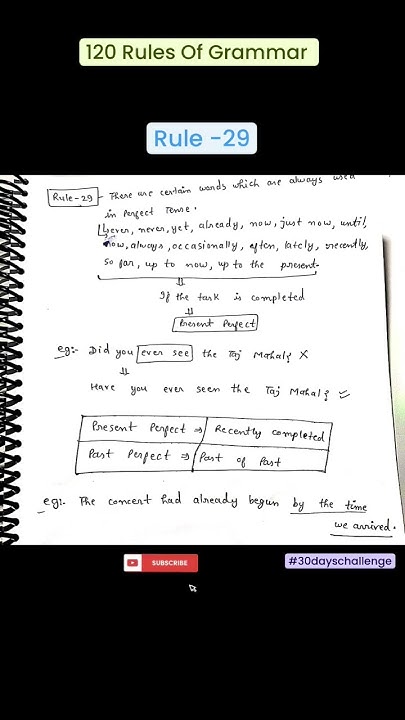 120 Rules Of Grammar
Rule -29
Rule-29 - There are certain words which are always used
in Perfect Tense.
ever, never, yet, already, now, just now, until,
now, always, occasionally, often, lately, recently,
so far, up to now, up to the present.
If the task is completed
Present Perfect
eg:- Did you ever see the Taj Mahal? X
Have you ever seen the Taj Mahal? ✓
Present Perfect ⇒ Recently completed
Past Perfect ⇒ Past of Past
eg:- The concert had already begun by the time
we arrived.
SUBSCRIBE
#30dayschallenge